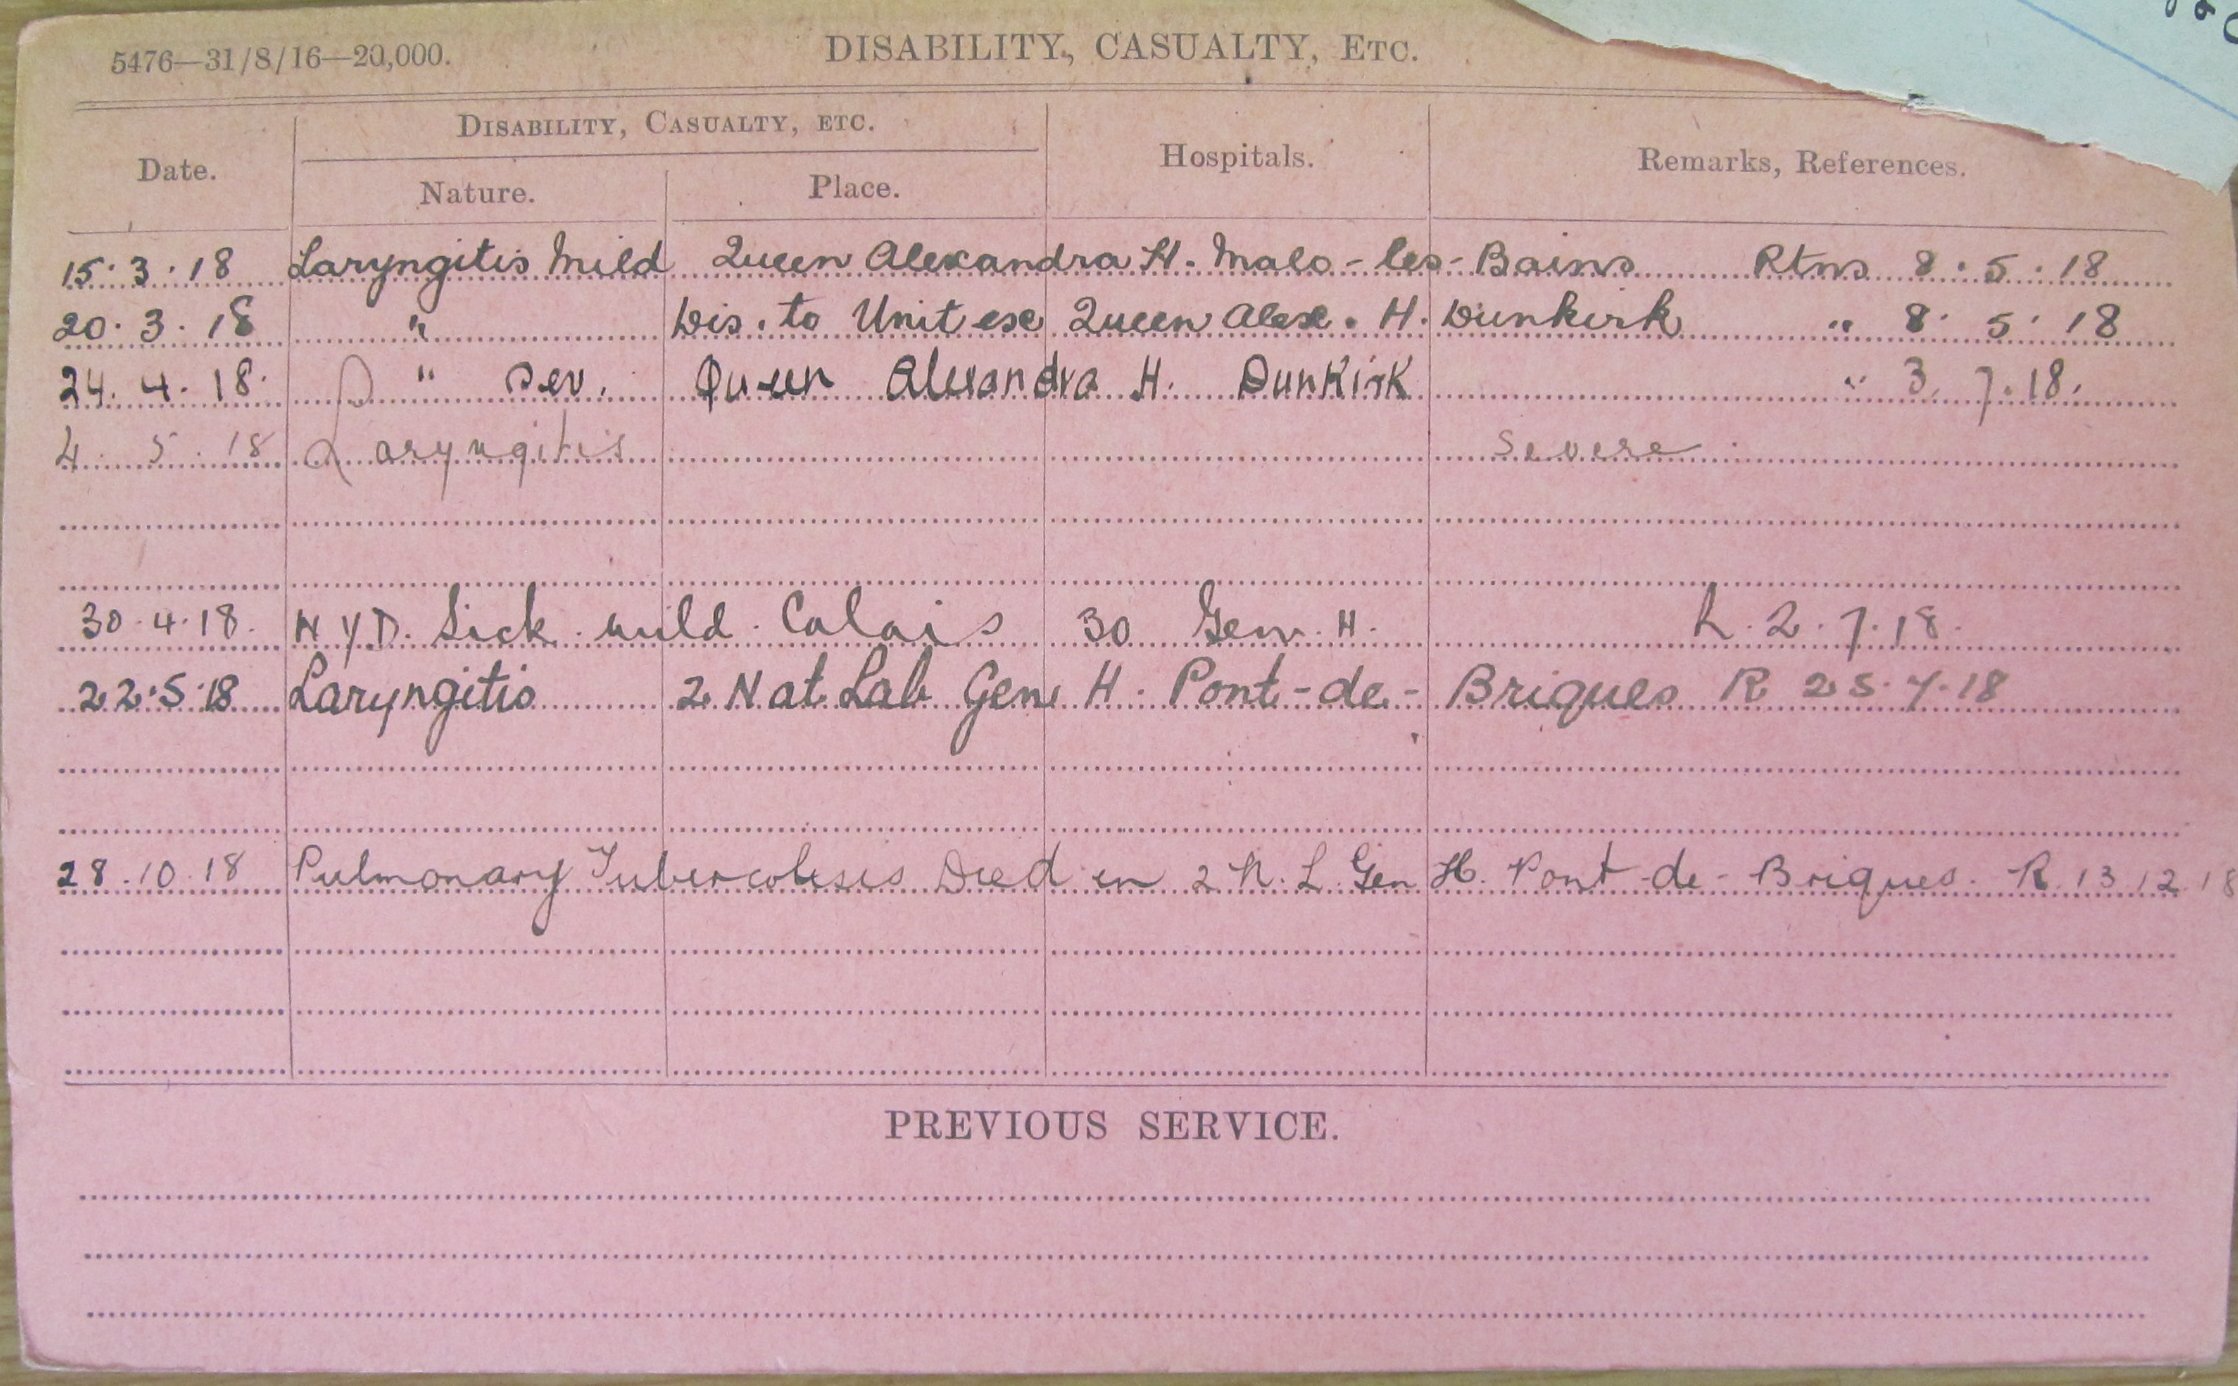 5476—31/8/16—20,000. DISABILITY, CASUALTY, ETC.
DISABILITY, CASUALTY, ETC.
Date. Nature. Place. Hospitals. Remarks, References.
15.3.18 Laryngitis Mild Queen Alexandra H. Malo-les-Bains Rtns 8.5.18
20.3.18 " Dis. to Unit exe Queen Alex. H. Dunkirk " 8. 5. 18
24.4.18. " Sev. Queen Alexandra H. Dunkirk " 3. 7.18.
4. 5.18 Laryngitis Severe
30.4.18. N Y D. Sick mild. Calais 30 Gen. H. L. 2.7.18.
22.5.18 Laryngitis 2 Nat Lab Gen H. Pont-de-Briques R 25.7.18
28.10.18 Pulmonary Tubercolesis Died in 2 N. L. Gen H. Pont-de-Briques. R. 13 12 18
PREVIOUS SERVICE.